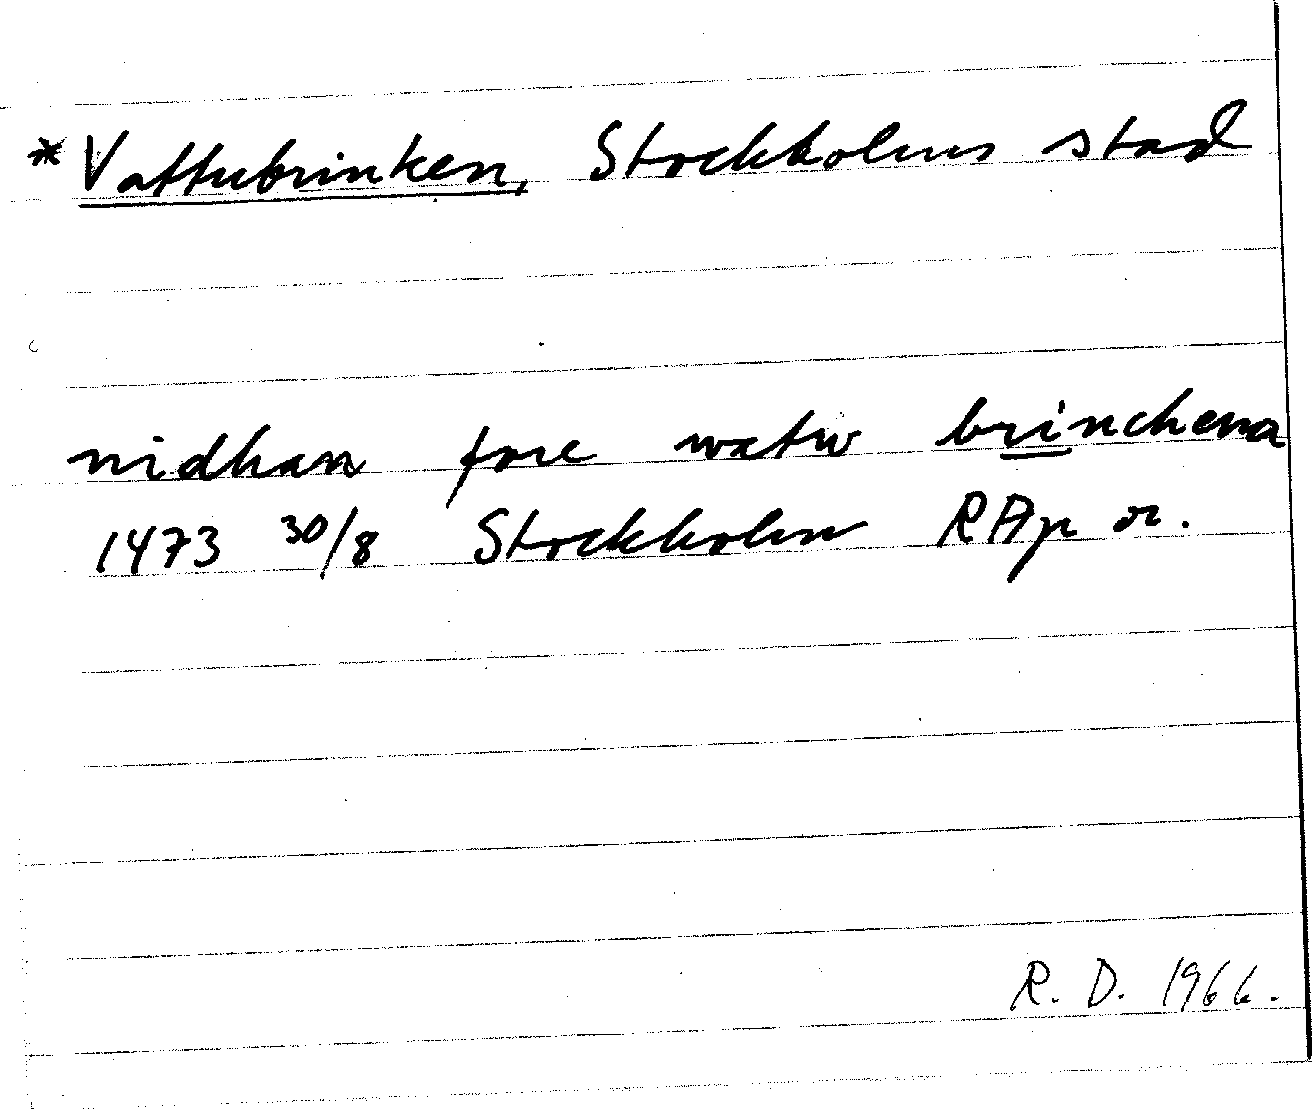 * Vattubrinken, Stockholms stad
nidhan fore watw brinchena
1473 30/8 Stockholm RAp or.
R. D. 1966.